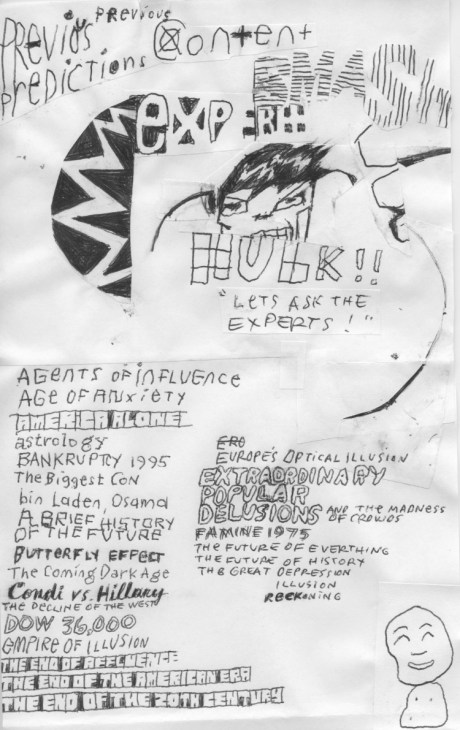 Previous
Previos
Content
Predictions
SMASH
EXPERT
HULK!!
"LETS ASK THE
EXPERTS!"
AGENTS OF iNFLUENCE
AGE OF ANXIETY
AMERICA ALONE
astrology
BANKRUPTCY 1995
The Biggest CoN
bin Laden, Osama
A BRIEF HISTORY
OF THE FUTURE
BUTTERFLY EFFECT
The Coming Dark Age
Condi vs. Hillary
THE DECLINE OF THE WEST
DOW 36,000
EMPIRE OF ILLUSION
THE END OF AFFLUENCE
THE END OF THE AMERICAN ERA
THE END OF THE 20TH CENTURY
ERO
EUROPE'S OPTICAL ILLUSION
EXTRAORDINARY
POPULAR
DELUSIONS AND THE MADNESS
OF CROWDS
FAMINE 1975
THE FUTURE OF EVERTHING
THE FUTURE OF HISTORY
THE GREAT DEPRESSION
ILLUSION
RECKONING